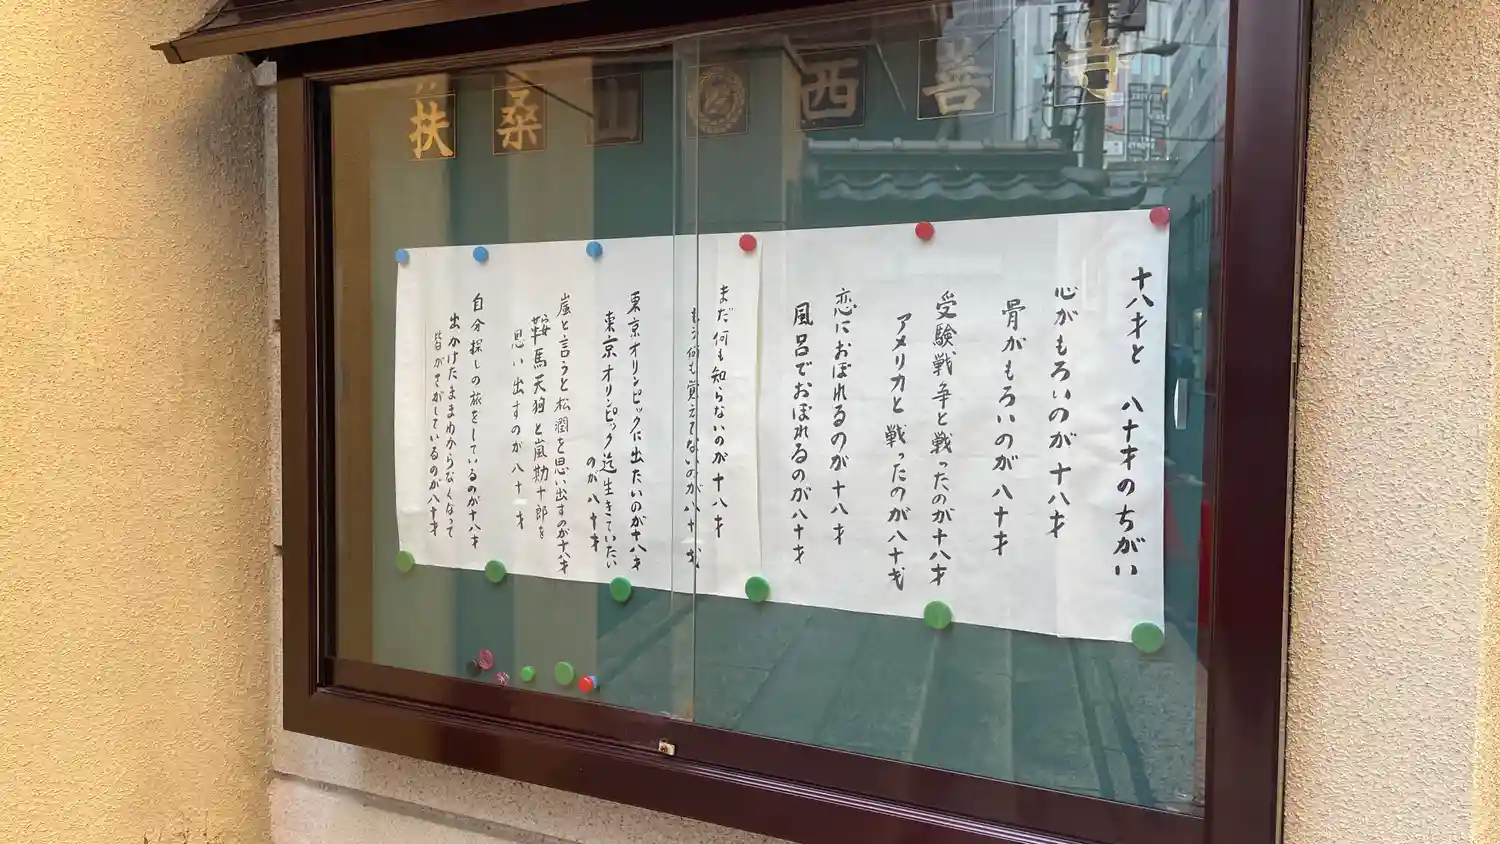 扶桑山 西善寺
十八才と 八十才のちがい
心がもろいのが十八才
骨がもろいのが八十才
受験戦争と戦ったのが十八才
アメリカと戦ったのが八十才
恋におぼれるのが十八才
風呂でおぼれるのが八十才
まだ何も知らないのが十八才
もう何も覚えてないのが八十才
東京オリンピックに出たいのが十八才
東京オリンピック迄生きていたい
のが八十才
嵐と言うと松潤を思い出すのが十八才
鞍馬天狗と嵐勘十郎を
思い出すのが八十才
自分探しの旅をしているのが十八才
出かけたままわからなくなって
皆がさがしているのが八十才